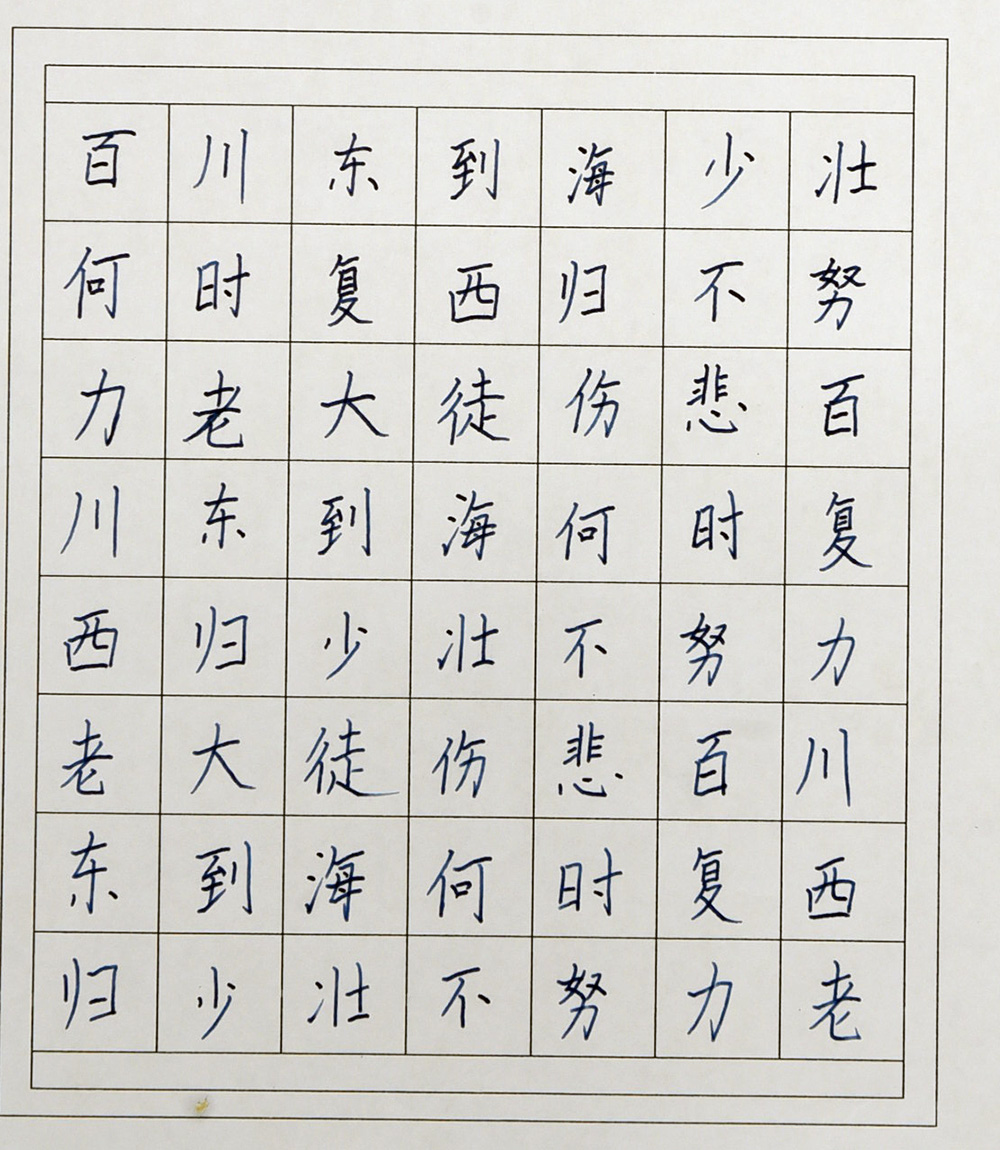 百川东到海少壮
何时复西归不努
力老大徒伤悲百
川东到海何时复
西归少壮不努力
老大徒伤悲百川
东到海何时复西
归少壮不努力老